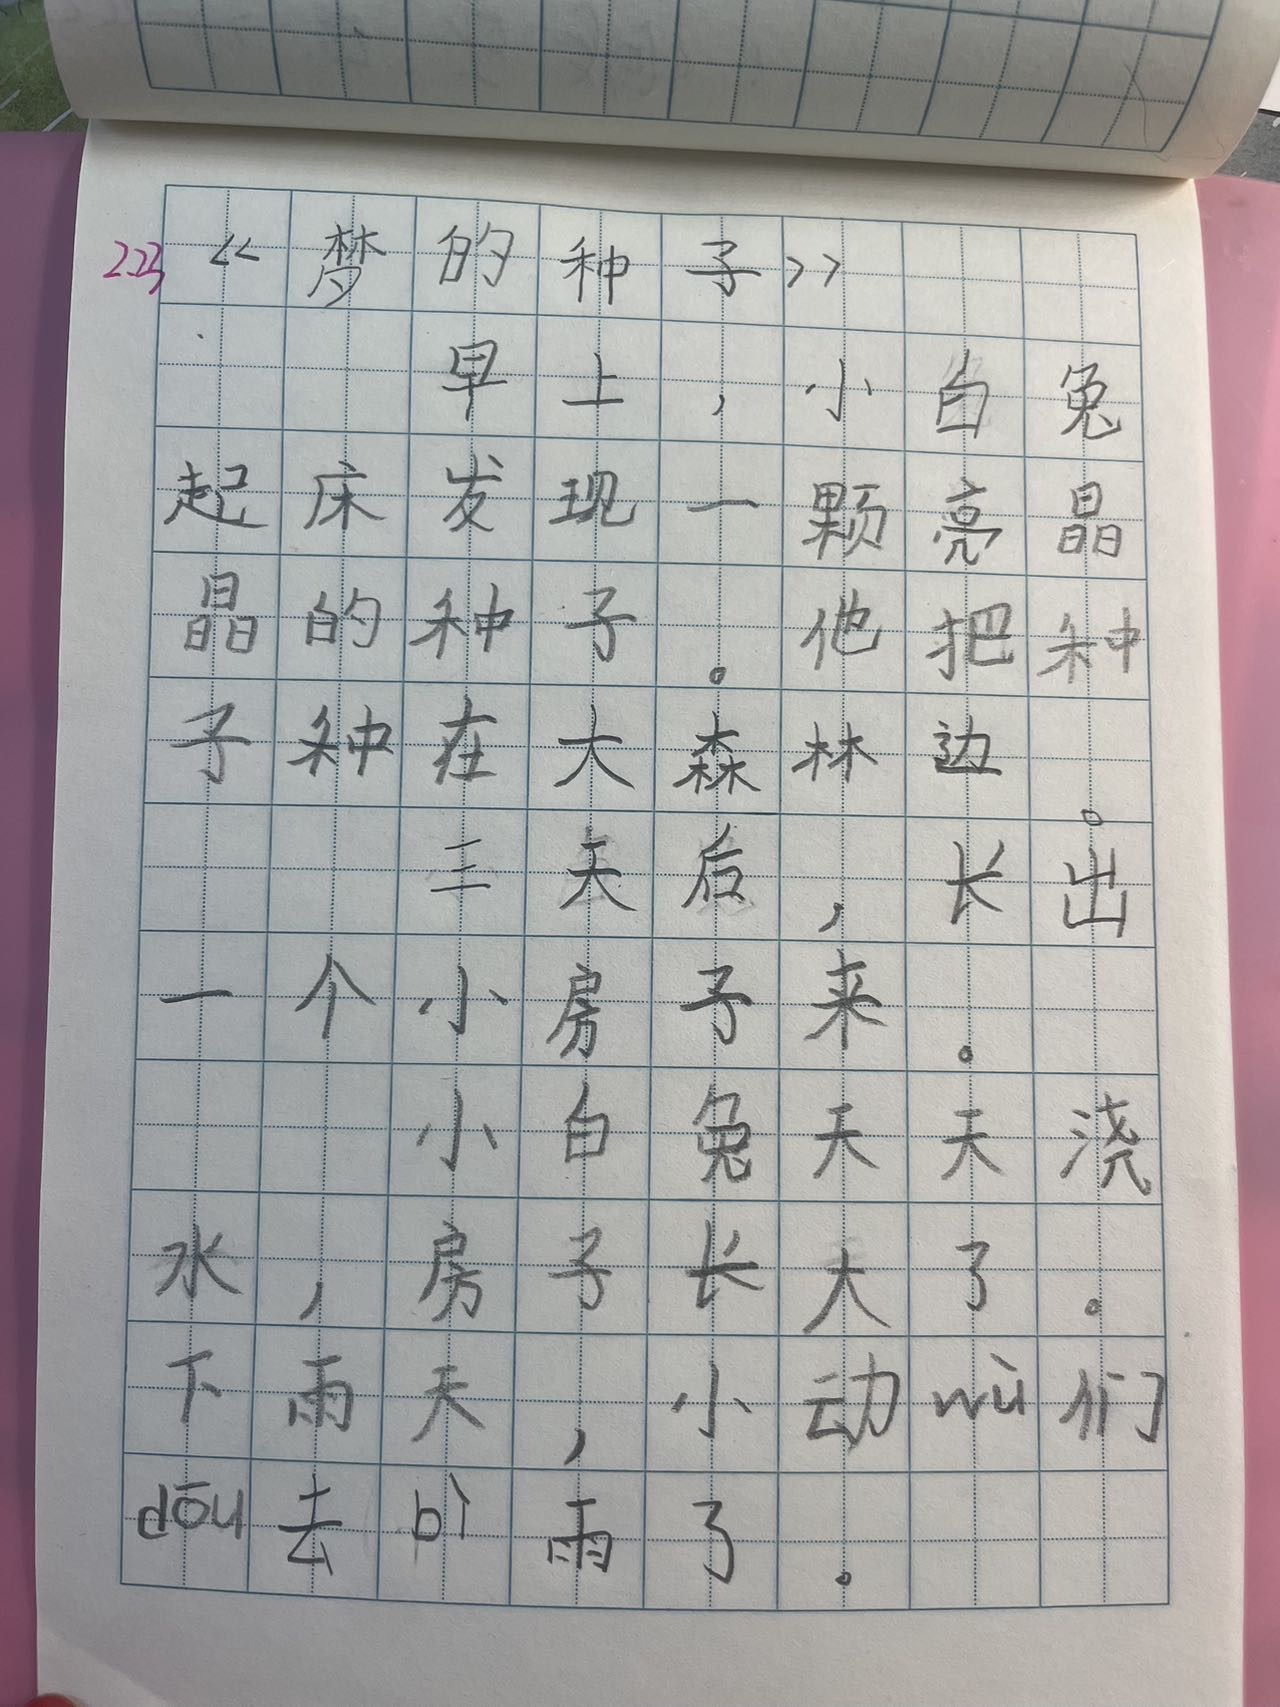 223
《梦的种子》
早上，小白兔
起床发现一颗亮晶
晶的种子。他把种
子种在大森林边。
三天后，长出
一个小房子来。
小白兔天天浇
水，房子长大了。
下雨天，小动wù们
dōu去bì雨了。